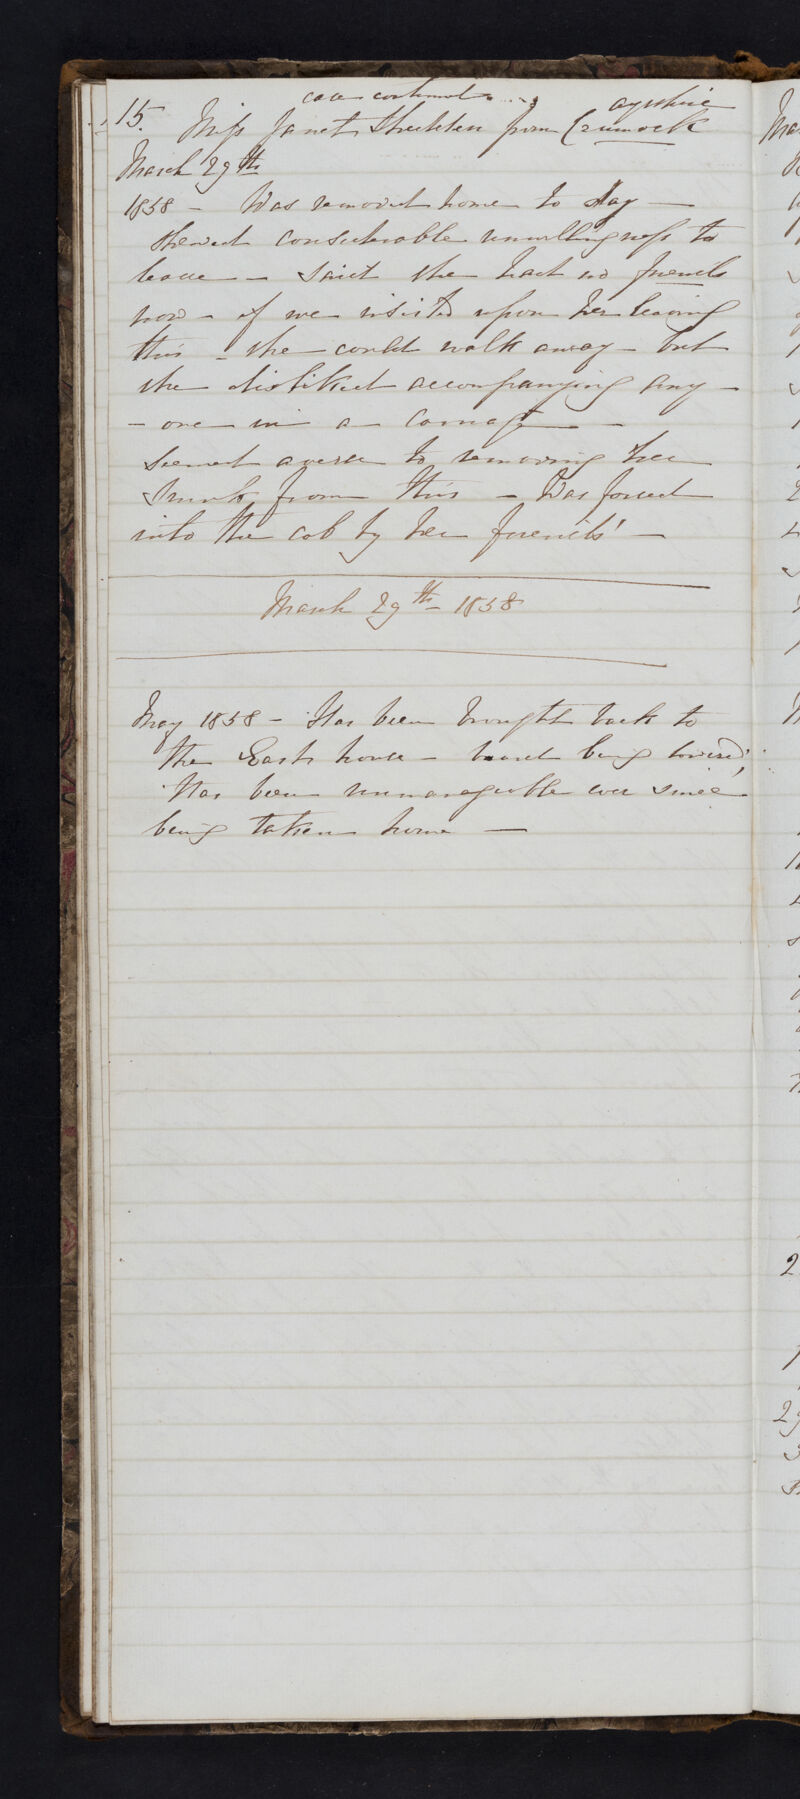 case continued
15. Miss Janet from Cumnock Ayrshire
March 29th
1858 - Was removed home to day -
Shewed considerable unwillingness to
leave - Said she had no friends
now - if we insisted upon her leaving
this - she could walk away - but
she disliked accompanying any -
- one in a carriage -
Seemed averse to removing her
trunk from this - Was forced
into the cab by her friends' -
March 29th - 1858
May 1858 - Has been brought back to
the East house - board being lowered;
Has been unmanageable ever since
being taken home -